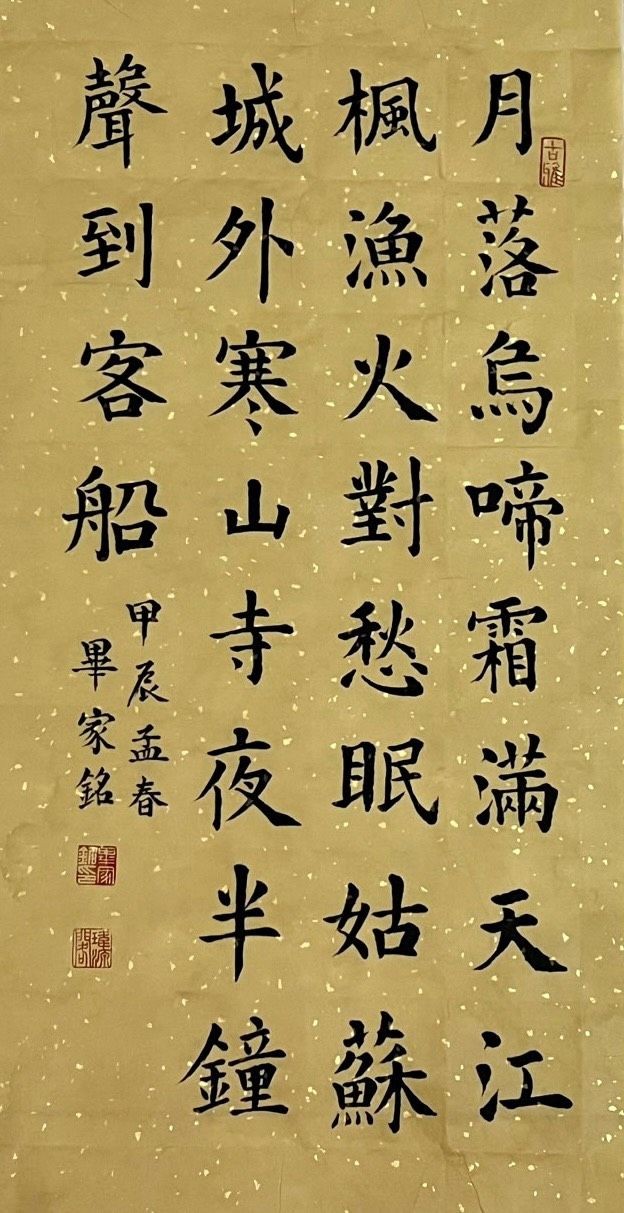 月落烏啼霜滿天江
楓漁火對愁眠姑蘇
城外寒山寺夜半鐘
聲到客船
甲辰孟春
畢家銘
古雅